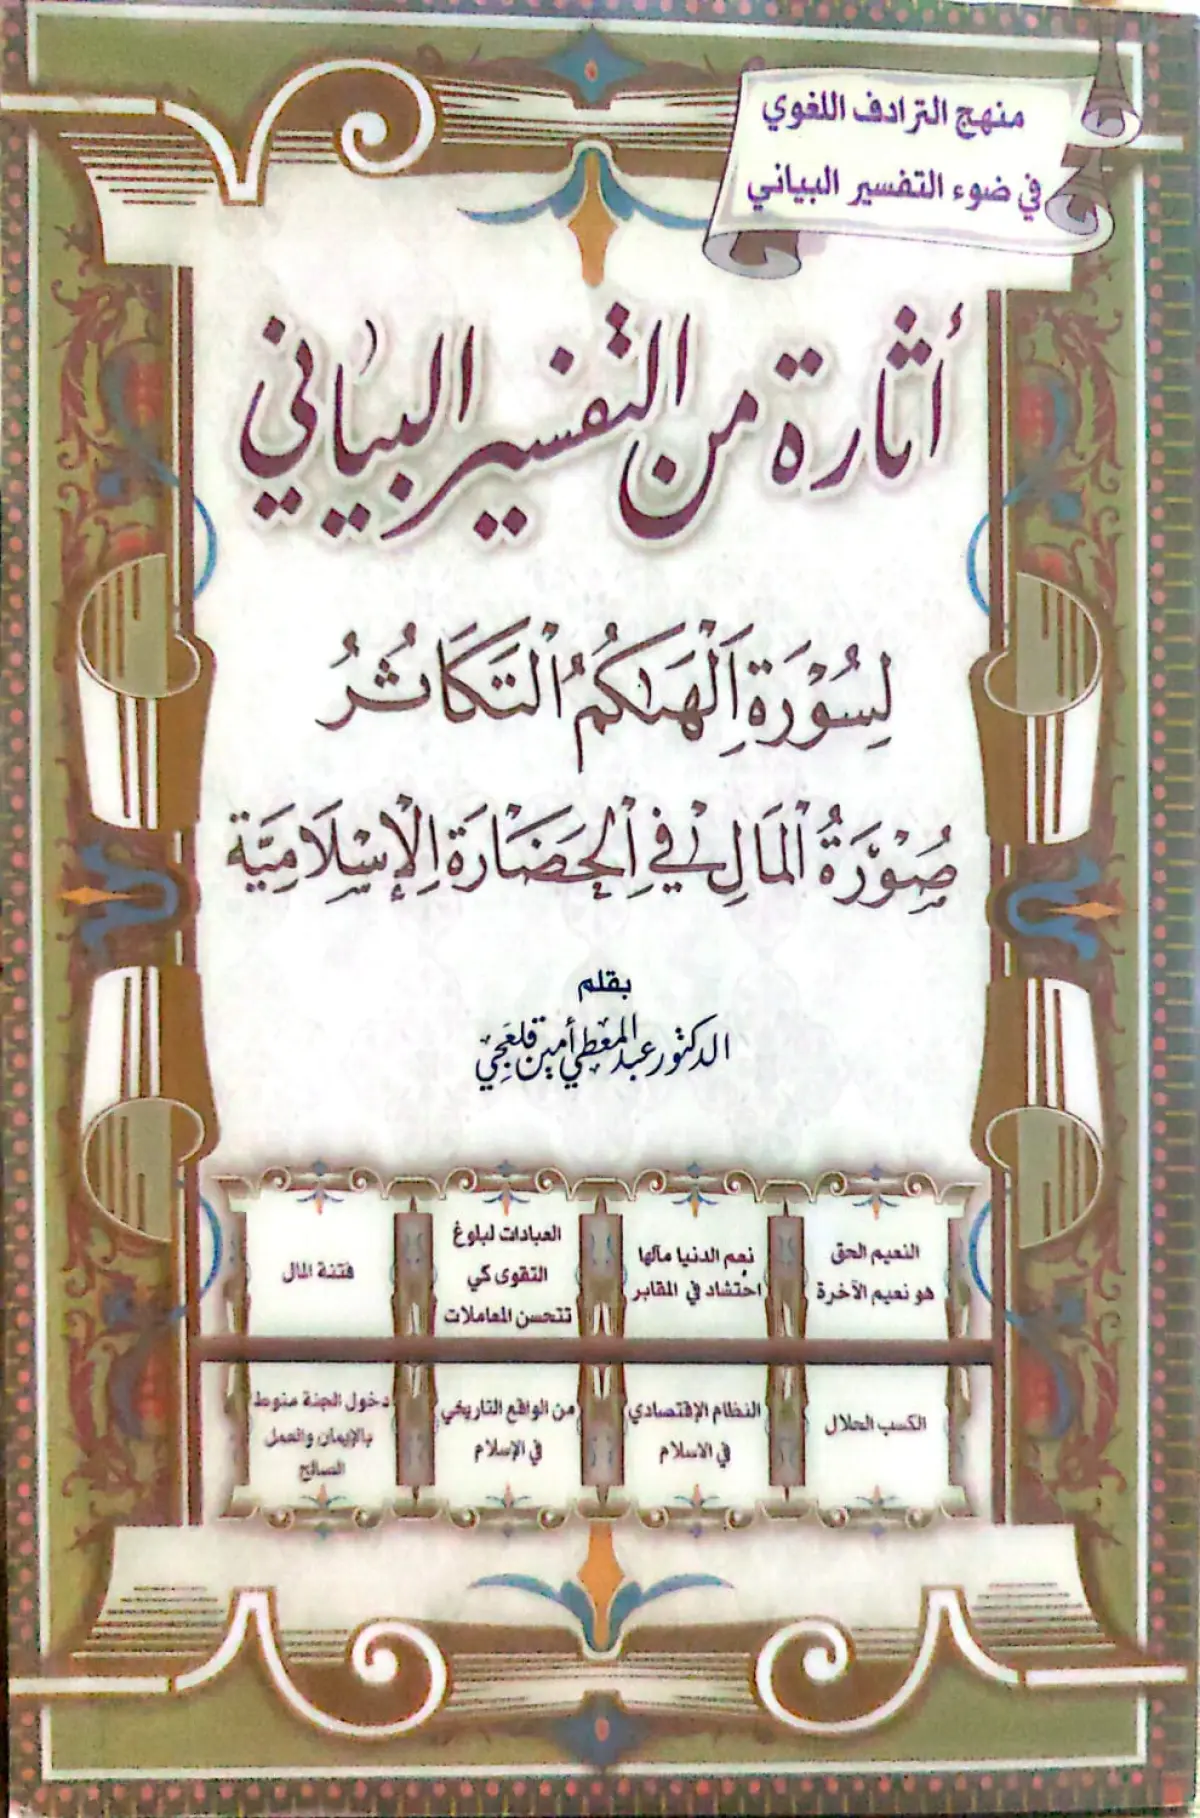 منهج الترادف اللغوي
في ضوء التفسير البياني
أثارة من التفسير البياني
لِسُوْرَةِ اَلْهَاكُمُ الْتَكَاثُرُ
صُوْرَةُ الْمَالِ فِي الْحَضَارَةِ الْإِسْلَامِيَّة
بقلم
الدكتور عبد المعطي أمين قلعجي
النعيم الحق
هو نعيم الآخرة
نعم الدنيا مآلها
احتشاد في المقابر
العبادات لبلوغ
التقوى كي
تتحسن المعاملات
فتنة المال
الكسب الحلال
النظام الإقتصادي
في الاسلام
من الواقع التاريخي
في الإسلام
دخول الجنة منوط
بالإيمان والعمل
الصالح